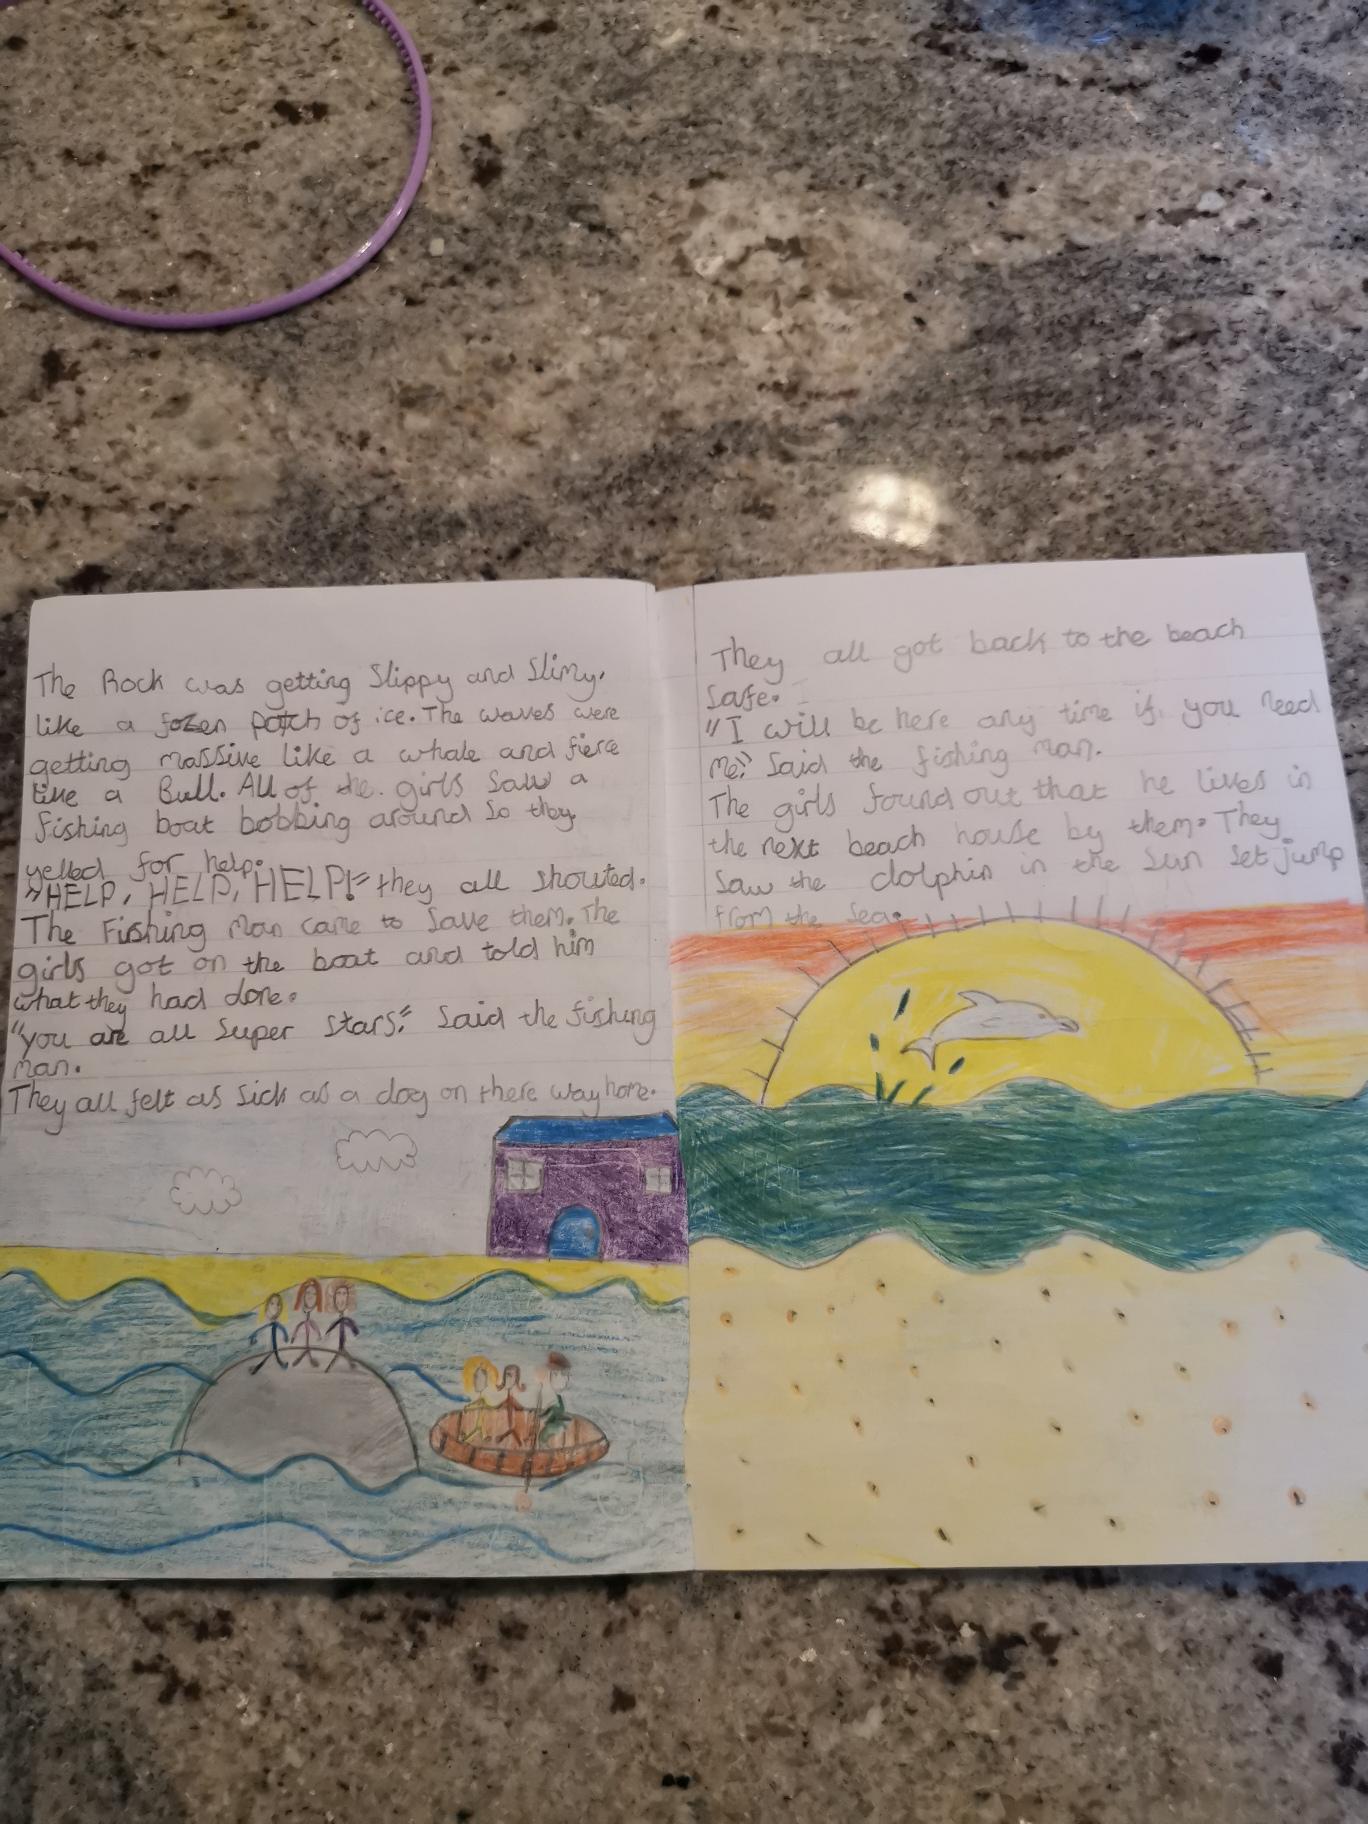 The Rock was getting Slippy and Slimy.
like a fozen patch of ice. The waves were
getting massive like a whale and fierce
like a Bull. All of the girls Saw a
fishing boat bobbing around so they
yelled for help.
"HELP, HELP, HELP!" they all shouted.
The Fishing Man came to save them. The
girls got on the boat and told him
what they had done.
"you are all super stars." Said the fishing
man.
They all felt as sick as a dog on there way home.
They all got back to the beach
Safe.
"I will be here any time if you need
me." Said the fishing man.
The girls found out that he lives in
the next beach house by them. They
Saw the dolphin in the sun set jump
from the sea.